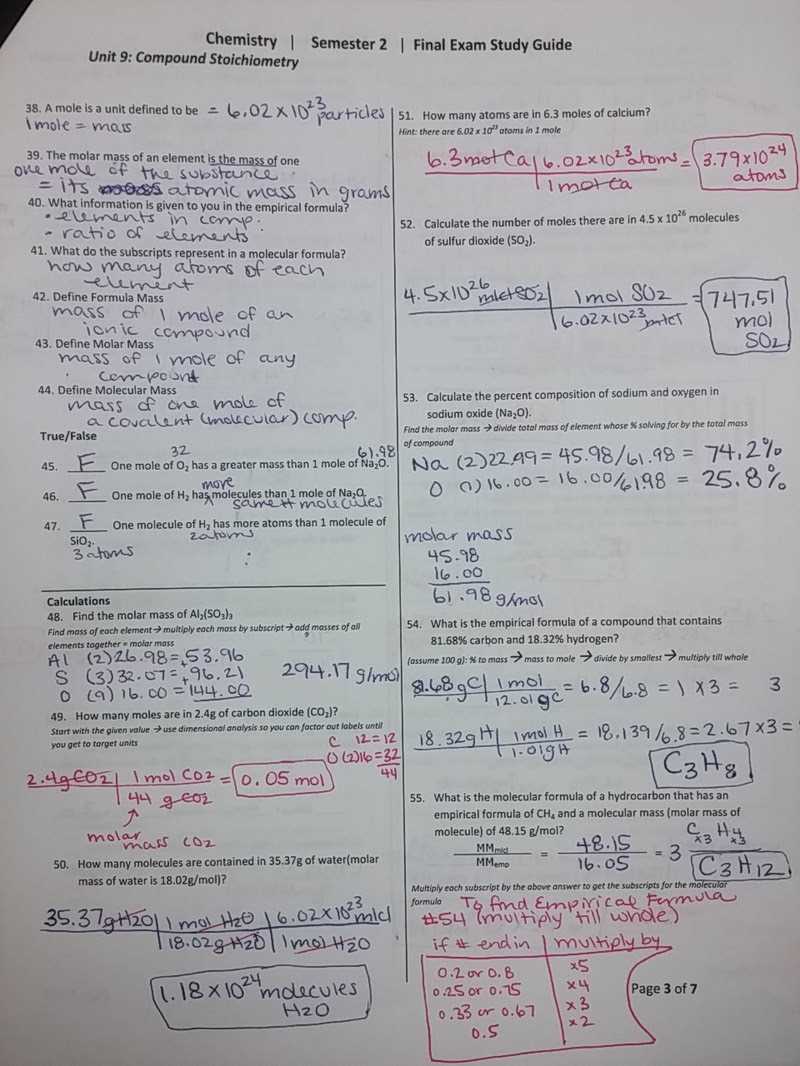 Chemistry | Semester 2 | Final Exam Study Guide
Unit 9: Compound Stoichiometry
38. A mole is a unit defined to be = 6.02 x 10^23 particles
1 mole = mass
39. The molar mass of an element is the mass of one
one mole of the substance
= its atomic mass in grams
40. What information is given to you in the empirical formula?
• elements in comp.
- ratio of elements
41. What do the subscripts represent in a molecular formula?
how many atoms of each
element
42. Define Formula Mass
mass of 1 mole of an
ionic compound
43. Define Molar Mass
mass of 1 mole of any
compound
44. Define Molecular Mass
mass of one mole of
a covalent (molecular) comp.
True/False
32 61.98
45. F One mole of O₂ has a greater mass than 1 mole of Na₂O.
more
46. F One mole of H₂ has molecules than 1 mole of Na₂O.
same # molecules
47. F One molecule of H₂ has more atoms than 1 molecule of
2 atoms
SiO₂.
3 atoms
Calculations
48. Find the molar mass of Al₂(SO₃)₃
Find mass of each element → multiply each mass by subscript → add masses of all
elements together = molar mass
Al (2) 26.98 = 53.96
S (3) 32.07 = + 96.21
O (9) 16.00 = + 144.00
294.17 g/mol
49. How many moles in 2.4g of carbon dioxide (CO₂)?
Start with the given value → use dimensional analysis so you can factor out labels until
you get to target units
C 12 = 12
O (2) 16 = 32
44
2.4g CO2 | 1 mol CO2 = 0.05 mol
44 g CO2
molar
mass CO2
50. How many molecules are contained in 35.37g of water(molar
mass of water is 18.02g/mol)?
35.37g H2O | 1 mol H2O | 6.02 x 10^23 mlcl
18.02g H2O | 1 mol H2O
1.18 x 10^24 molecules
H2O
51. How many atoms are in 6.3 moles of calcium?
Hint: there are 6.02 x 10^23 atoms in 1 mole
6.3 mol Ca | 6.02 x 10^23 atoms = 3.79 x 10^24
1 mol Ca
atoms
52. Calculate the number of moles there are in 4.5 x 10^26 molecules
of sulfur dioxide (SO₂).
4.5 x 10^26 mlcl SO2 | 1 mol SO2 = 747.51
6.02 x 10^23 mlcl
mol
SO2
53. Calculate the percent composition of sodium and oxygen in
sodium oxide (Na₂O).
Find the molar mass → divide total mass of element whose % solving for by the total mass
of compound
Na (2) 22.99 = 45.98/61.98 = 74.2%
O (1) 16.00 = 16.00/61.98 = 25.8%
molar mass
45.98
16.00
61.98 g/mol
54. What is the empirical formula of a compound that contains
81.68% carbon and 18.32% hydrogen?
(assume 100 g): % to mass → mass to mole → divide by smallest → multiply till whole
8.68 g C | 1 mol = 6.8/6.8 = 1 x 3 = 3
12.01 g C
18.32 g H | 1 mol H = 18.139/6.8 = 2.67 x 3 =
1.01 g H
C3H8
55. What is the molecular formula of a hydrocarbon that has an
empirical formula of CH₄ and a molecular mass (molar mass of
molecule) of 48.15 g/mol?
MM mld = 48.15 = 3 C x3 H4 x3
MM emp 16.05
C3H12
Multiply each subscript by the above answer to get the subscripts for the molecular
formula
To find Empirical Formula
#54 (multiply till whole)
if # end in | multiply by
0.2 or 0.8 x5
0.25 or 0.75 x4
0.33 or 0.67 x3
0.5 x2
Page 3 of 7